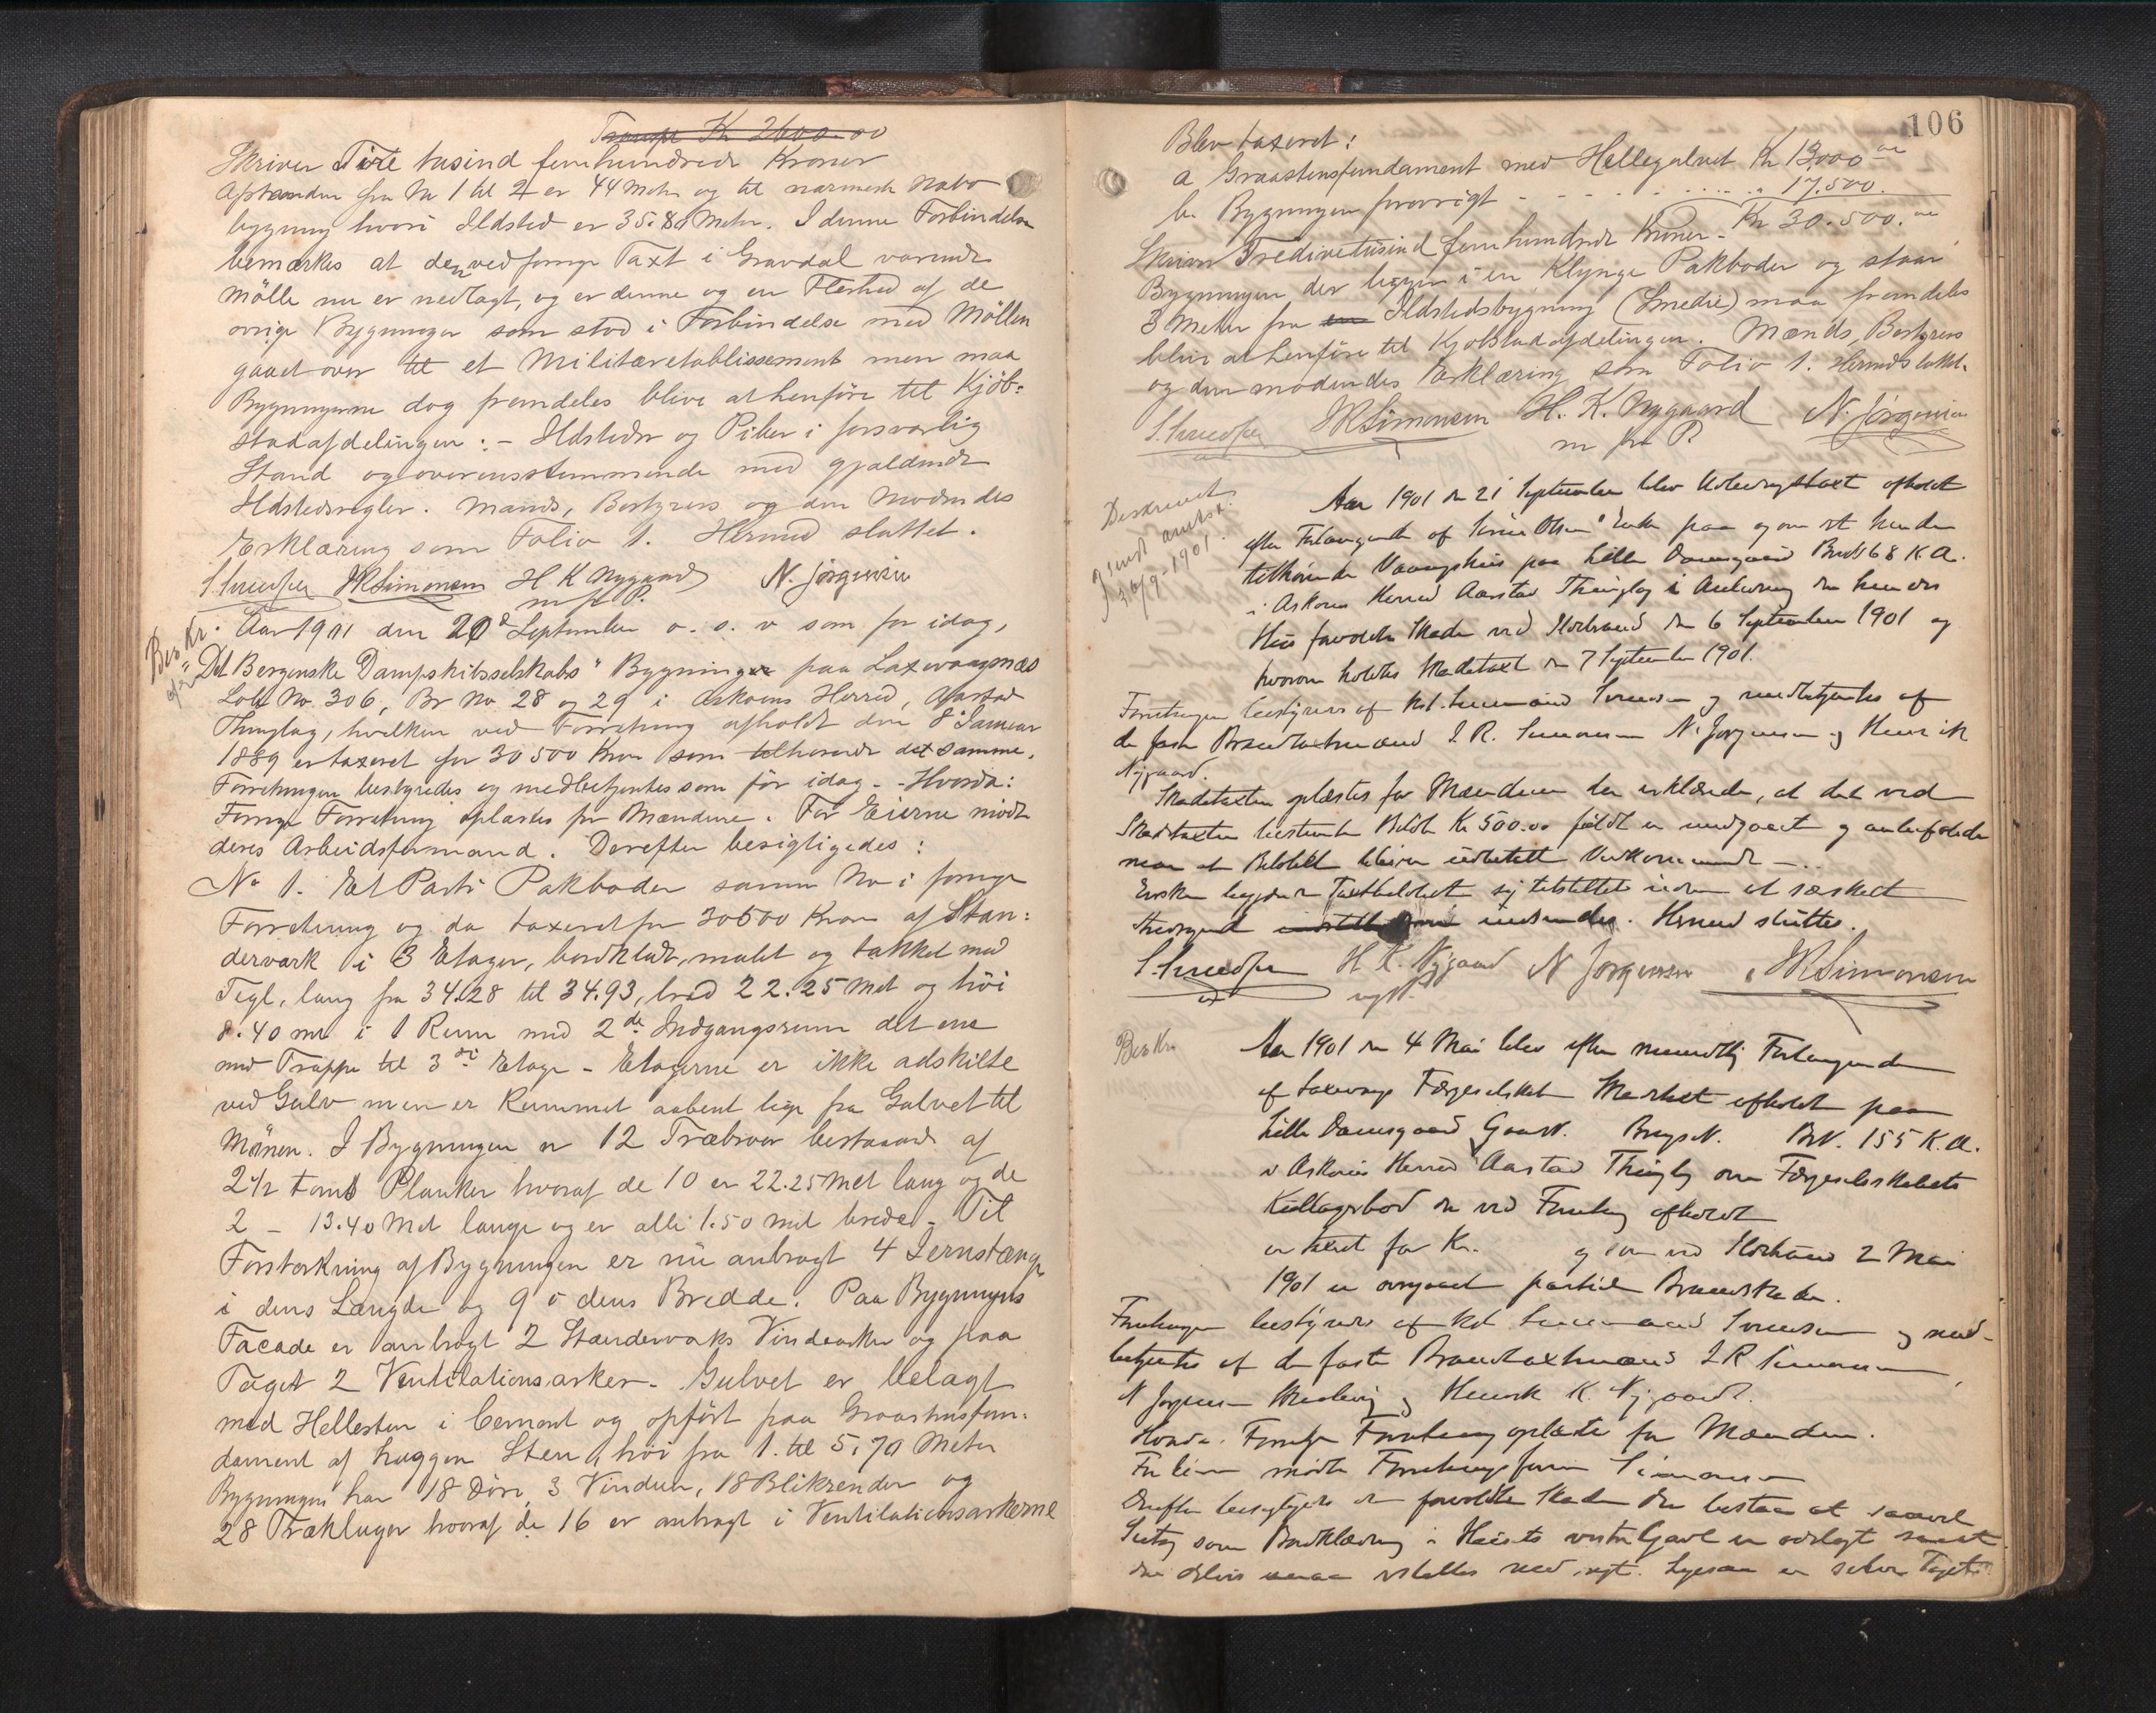 Transport Kr 2600.00
Skriver Tire tusind femhundrede Kroner
Afstanden fra No 1 til 2 er 44 Meter og til nærmeste Nabo
bygning hvori Ildsted er 35.80 Meter. I denne Forbindelse
bemærkes at den ved forrige Taxt i Gravdal værende
Mölle nu er nedlagt, og er denne og en Flerhed af de
övrige Bygninger som stod i Forbindelse med Möllen
gaaet over til et Militæretablissement men maa
Bygningerne dog fremdeles blive at henföre til Kjöb=
stadafdelingen: - Ildsteder og Piber i forsvarlig
Stand og overensstemmende med gjældende
Ildstedsregler. Mænds, Bestyrers og den Mödendes
Erklæring som Folio 1. Hermed sluttet.
JRSimonsen H K Nygaard N. Jörgensen
m f P.
Beskr.
Aar 1901 den 20de September o. s. v som för idag,
"Det Bergenske Dampskibsselskabs" Bygninger paa Laxevaagnæs
Löbe No. 306, Br No 28 og 29 i Askøens Herred, Aarstad
Thinglag, hvilken ved Forretning afholdt den 8 Januar
1889 er taxeret for 30500 Kroner som tilhörende det samme.
Forretningen bestyredes og medbetjentes som för idag. - Hvorda:
Forrige Forretning oplæstes for Mændene. For Eierne mödte
deres Arbeidsformand. Derefter besigtigedes:
No 1. Et Parti Pakboder samme No i forrige
Forretning og da taxeret for 30500 Kroner af Stan=
derværk i 3 Etager, bordklædt, malet og takket med
Tegl, lang fra 34.28 til 34.93, bred 22.25 Met og höi
8.40 met i 1 Rum med 2de Indgangsrum det ene
med Trappe til 3die Etage - Etagerne er ikke adskilte
ved Gulv men er Rummet aabent lige fra Gulvet til
Mönen. I Bygningen er 12 Træbroer bestaaende af
2 1/2 Toms Planker hvoraf de 10 er 22.25 Met lang og de
2 - 13.40 Met lange og er alle 1.50 met brede - Til
Forstærkning af Bygningen er nu anbragt 4 Jernstænger
i dens Længde og 9 i dens Bredde. Paa Bygningens
Facade er anbragt 2 Standerværks Vindearker og paa
Taget 2 Ventilationsarker - Gulvet er belagt
med Hellesten i Cement og opfört paa Graastensfun=
dament af huggen Sten, höi fra 1. til 5.70 Meter
Bygningen har 18 Döre, 3 Vinduer, 18 Blikrender og
28 Trækluger hvoraf de 16 er anbragt i Ventilationsarkerne
106
Blev taxeret:
a Graastensfundament med Hellegulvet Kr 13000.00
b. Bygningen forövrigt - - - - 17.500.
Kr 30.500.00
Skriver Tredivetusind femhundrede Kroner -
Bygningen der ligger i en Klynge Pakboder og staar
3 Meter fra Ildstedsbygning (Smedie) maa fremdeles
blive at henföre til Kjöbstadafdelingen. Mænds, Bestyrers
og den mödendes Erklæring som Folio 1. Hermed sluttet.
JRSimonsen H. K. Nygaard N. Jörgensen
m f P.
Beskrevet
sendt
26/9-1901
Aar 1901 den 21 September blev Udbedringstaxt afholdt
efter Forlangende af Olsens Enke paa og om det hende
tilhörende Vaaningshus paa Lille Damsgaard Br.No 68 K.A.
i Askøens Herred Aarstad Thinglag i Anledning den hendes
Hus forvoldte Skade ved Ildebrand den 6 September 1901 og
hvorom holdtes Skadetaxt den 7 September 1901.
Forretningen bestyres af Kst. Lensmand og medbetjentes af
de faste Brandtaxtmænd J. R. Simonsen N. Jörgensen og Henrik
Nygaard.
Skadetaxten oplæstes for Mændene der erklærede, at det ved
Skadetaxten bestemte Belöb Kr 500.00 fuldt er medgaaet og anbefalede
man at Beløbet bliver udbetalt Vedkommende -
Enken begjærer Taxtbeløbet sig tilstillet uden at særskilt
indsendes. Hermed sluttes.
H. K. Nygaard N Jörgensen JRSimonsen
Beskr.
Aar 1901 den 4 Mai blev efter mundtlig Forlangende
af Laxevaag Færgeselskab Skadetaxt afholdt paa
Lille Damsgaard GaardN. BrugsN. BrN. 155 K.A.
i Askøens Herred Aarstad Thinglag over Færgeselskabets
Kullagerbod der ved Forretning afholdt
er taxeret for Kr. og som ved Ildebrand 2 Mai
1901 er overgaaet partiel Brandskade.
Forretningen bestyredes af Kst Lensmand og med-
betjentes af de faste Brandtaxtmænd J R Simonsen,
N Jörgensen og Henrik K. Nygaard.
Hvorda: Forrige Forretning oplæstes for Mændene.
For Eieren mödte Forretningsförer Simonsen
Derefter besigtigedes den forvoldte Skade der bestaar at saavel
som Bordklædning i Husets vestre Gavl er ödelagt samt
den delvis maa erstattes med nyt. Ligesaa er selve Taget